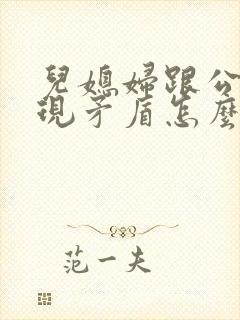 兒媳婦跟公
現矛盾怎麼
范一夫